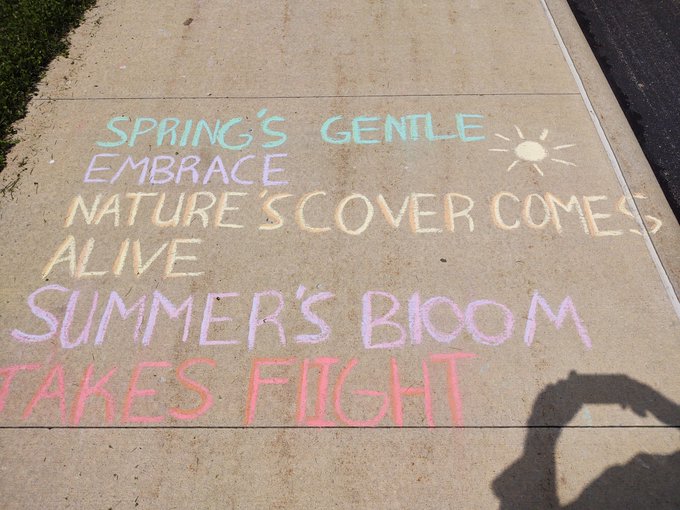 SPRING'S GENTLE
EMBRACE
NATURE'S COVER COMES
ALIVE
SUMMER'S BLOOM
TAKES FLIGHT